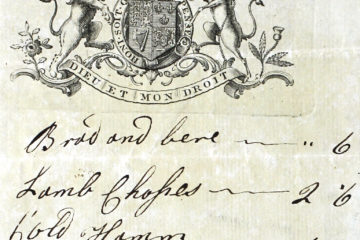 HONI SOIT Q
PENSE
DIEU ET MON DROIT
Brad and bere — " 6
Lamb Chopes — 2 " 6
Cold Hamm